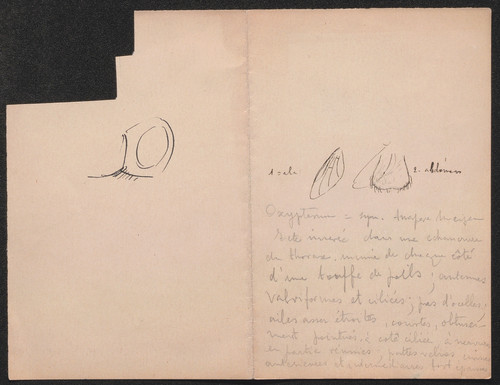 1. aile 2. abdomen
Oxypterum = syn.
Tête insérée dans une échancrure
du thorax, munie de chaque côté
d'une touffe de poils; antennes
valviformes et ciliées; pas d'ocelles,
ailes assez étroites, courtes, obtusé-
ment pointues à côté ciliée, à nervures
en partie réunies; pattes velues
antérieures et